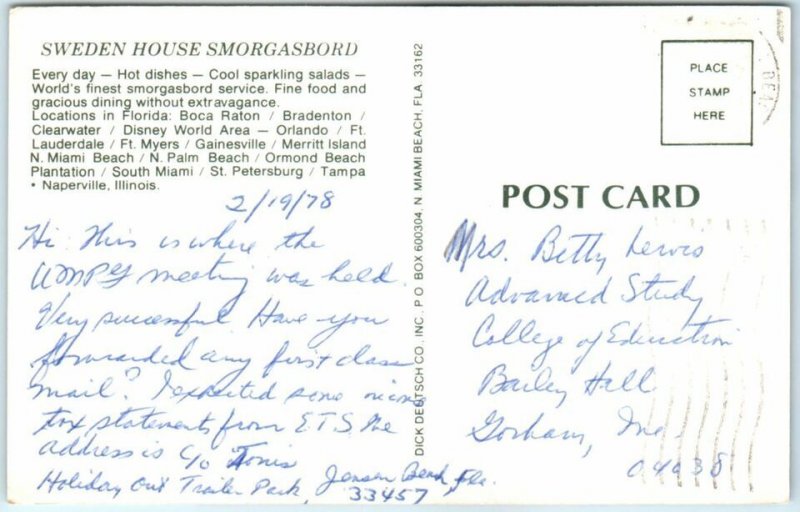 SWEDEN HOUSE SMORGASBORD
Every day — Hot dishes — Cool sparkling salads —
World's finest smorgasbord service. Fine food and
gracious dining without extravagance.
Locations in Florida: Boca Raton / Bradenton /
Clearwater / Disney World Area — Orlando / Ft.
Lauderdale / Ft. Myers / Gainesville / Merritt Island
N. Miami Beach / N. Palm Beach / Ormond Beach
Plantation / South Miami / St. Petersburg / Tampa
• Naperville, Illinois.
2/19/78
Hi. This is where the
meeting was held.
Very successful. Have you
forwarded any first class
mail? I expected some
tax statements from E.T.S. The
address is c/o
Holiday Out Trailer Park, Jensen Beach, Fla.
33457
DICK DEUTSCH CO., INC. P O BOX 600304, N MIAMI BEACH, FLA 33162
PLACE
STAMP
HERE
POST CARD
Mrs. Betty Lewis
Advanced Study
College of Education
Bailey Hall
Gorham, Me.
04038